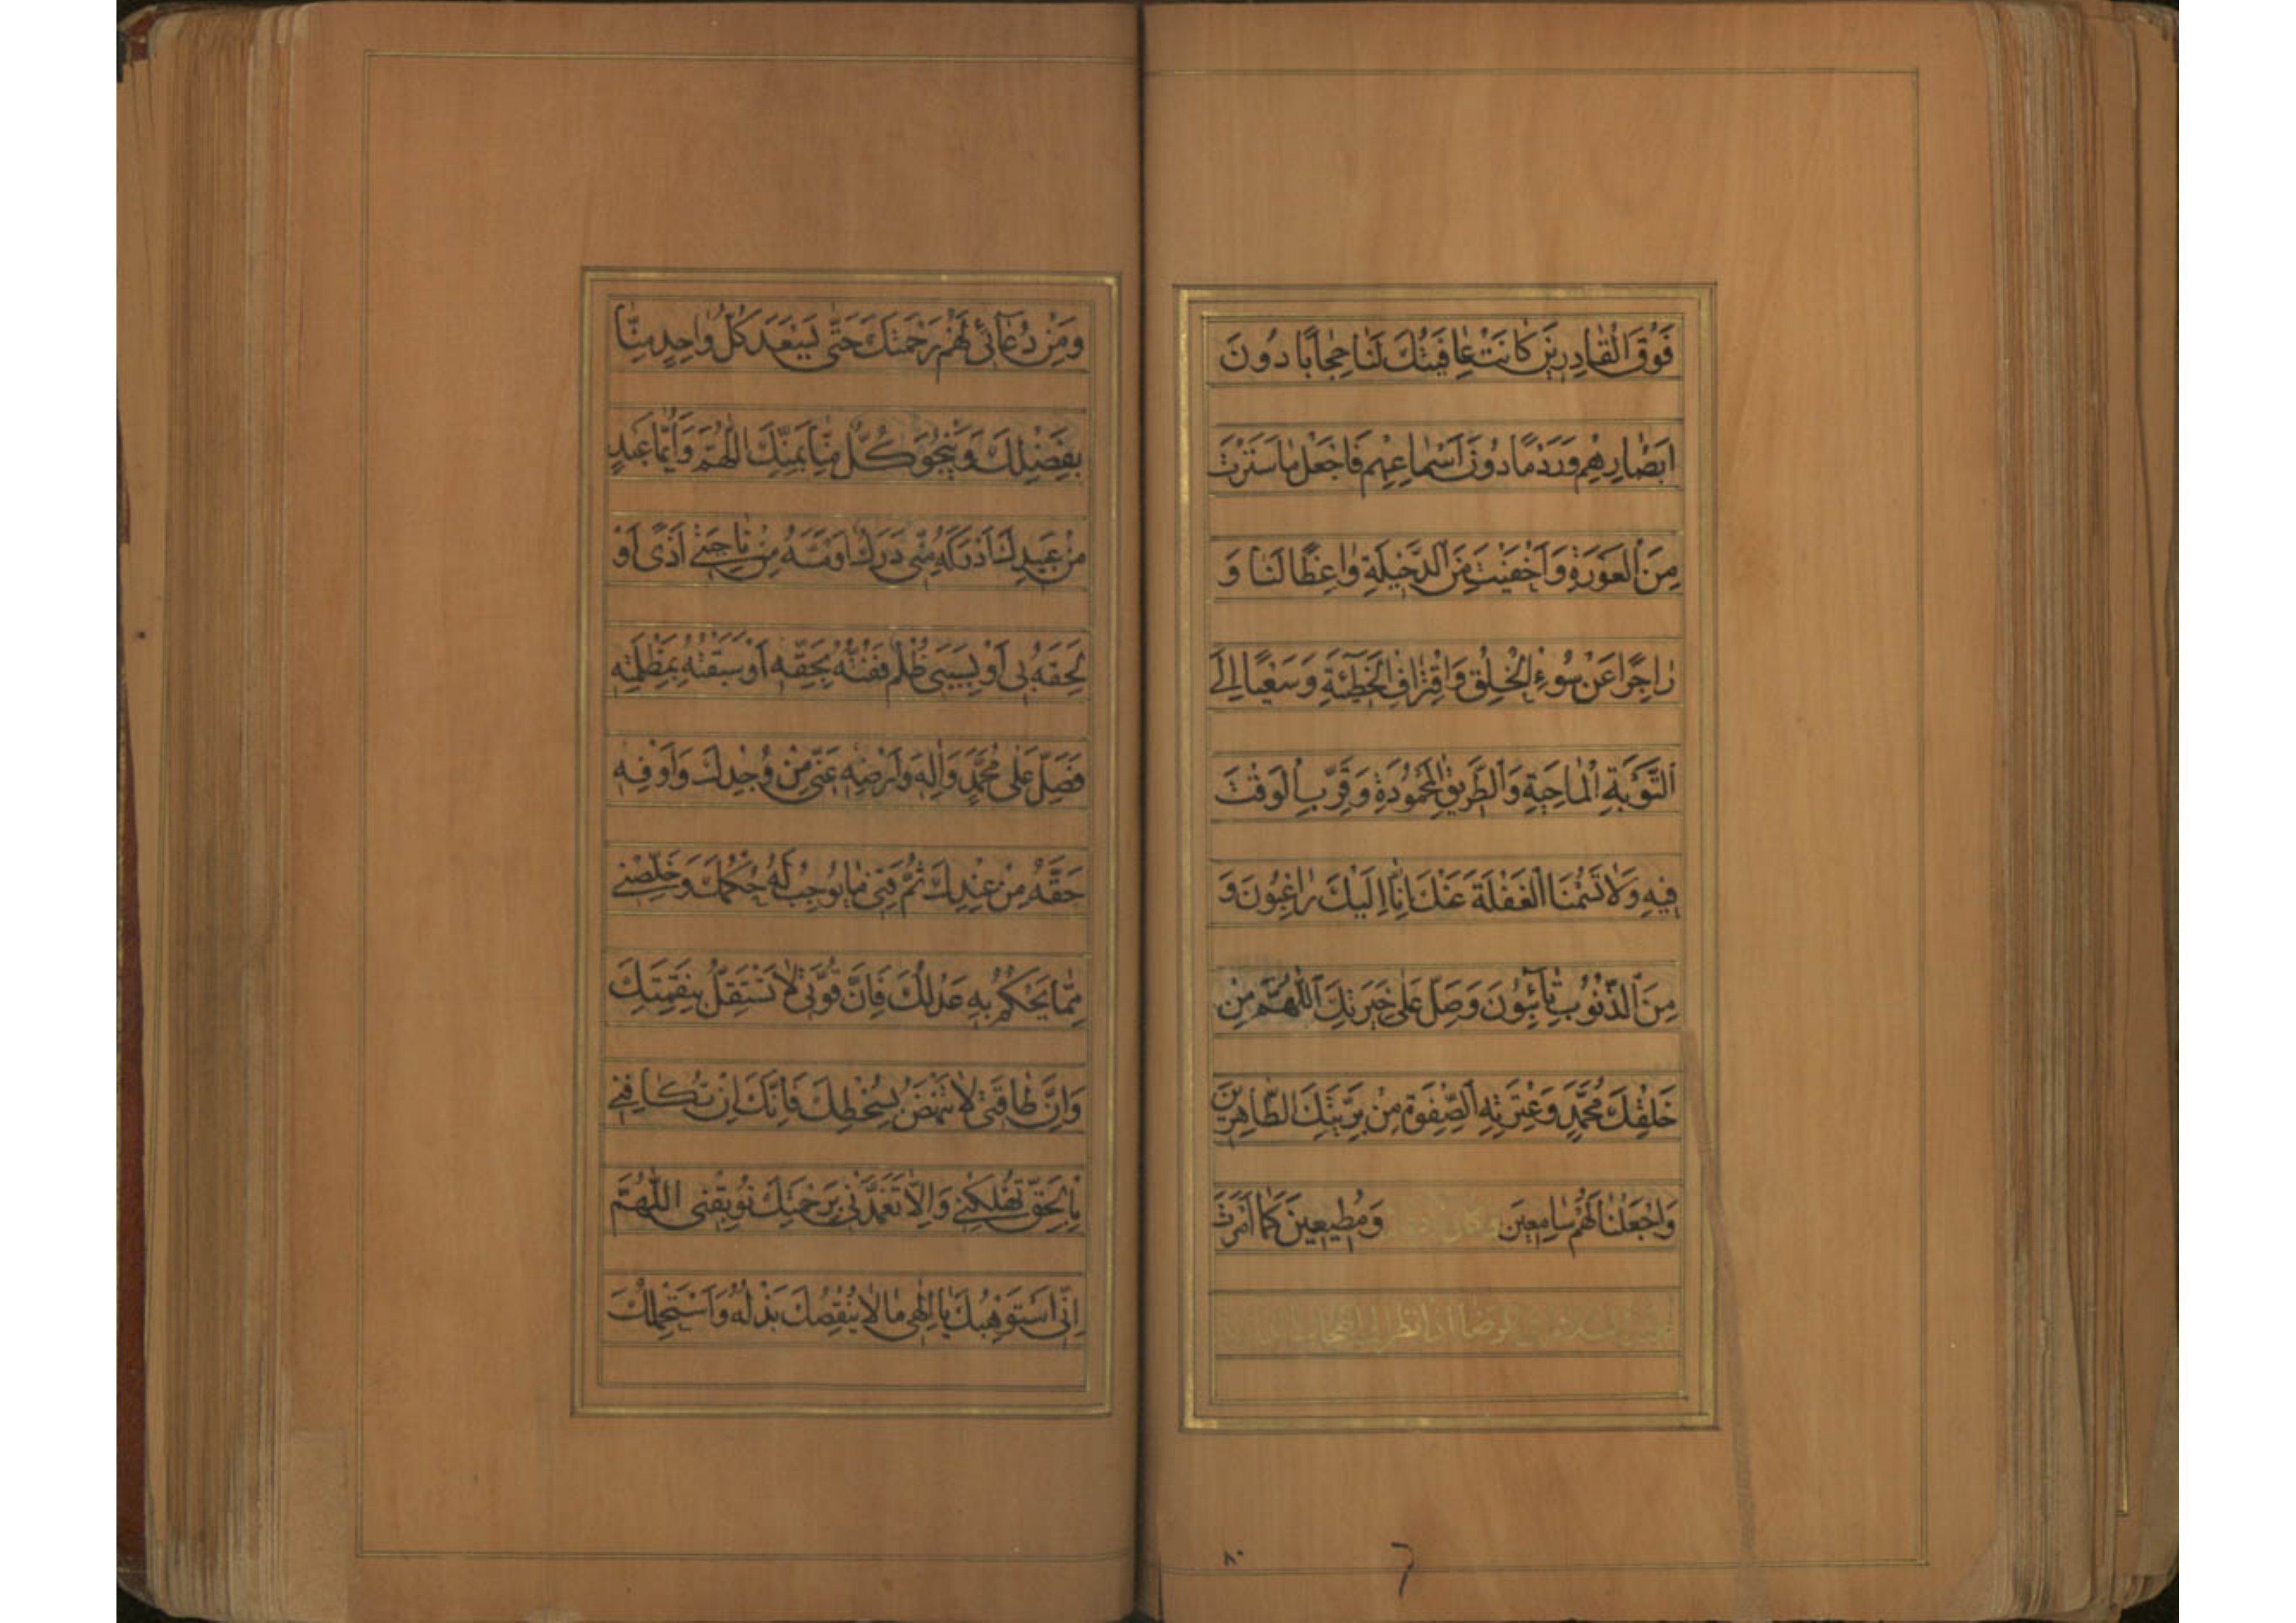 فَوْقَ الْقَادِرِينَ كَانَتْ عَافِيَتُكَ لَنَا حِجَابًا دُونَ
اَبْصَارِهِمْ وَرَدْمًا دُونَ اَسْمَاعِهِمْ فَاجْعَلْ مَا سَتَرْتَ
مِنَ الْعَوْرَةِ وَاَخْفَيْتَ مِنَ الدَّخِيلَةِ وَاعِظًا لَنَا وَ
زَاجِرًا عَنْ سُوءِ الْخُلْقِ وَاقْتِرَافِ الْخَطِيئَةِ وَسَعْيًا اِلَى
التَّوْبَةِ الْمَاحِيَةِ وَالطَّرِيقِ الْمَحْمُودَةِ وَقَرِّبِ الْوَقْتَ
فِيهِ وَلَا تَسُمْنَا الْغَفْلَةَ عَنْكَ اِنَّا اِلَيْكَ رَاغِبُونَ وَ
مِنَ الذُّنُوبِ تَائِبُونَ وَصَلِّ عَلَى خِيَرَتِكَ اللّٰهُمَّ مِنْ
خَلْقِكَ مُحَمَّدٍ وَعِتْرَتِهِ الصِّفْوَةِ مِنْ بَرِيَّتِكَ الطَّاهِرِينَ
وَاجْعَلْنَا لَهُمْ سَامِعِينَ وَمُطِيعِينَ كَمَا اَمَرْتَ
اذا نظر الى اصحاب
٨٠
وَمِنْ دُعَائِي لَهُمْ رَحْمَتَكَ حَتَّى يَسْعَدَ كُلُّ وَاحِدٍ مِنَّا
بِفَضْلِكَ وَيَنْجُوَ كُلٌّ مِنَّا بِمَنِّكَ اللّٰهُمَّ وَاَيُّمَا عَبْدٍ
مِنْ عَبِيدِكَ اَدْرَكَهُ مِنِّي دَرَكٌ اَوْ مَسَّهُ مِنْ نَاحِيَتِي اَذًى اَوْ
لَحِقَهُ بِي اَوْ بِسَبَبِي ظُلْمٌ فَفُتُّهُ بِحَقِّهِ اَوْ سَبَقْتُهُ بِمَظْلِمَتِهِ
فَصَلِّ عَلَى مُحَمَّدٍ وَاٰلِهِ وَاَرْضِهِ عَنِّي مِنْ وُجْدِكَ وَاَوْفِهِ
حَقَّهُ مِنْ عِنْدِكَ ثُمَّ قِنِي مَا يُوجِبُ لَهُ حُكْمُكَ وَخَلِّصْنِي
مِمَّا يَحْكُمُ بِهِ عَدْلُكَ فَاِنَّ قُوَّتِي لَا تَسْتَقِلُّ بِنِقْمَتِكَ
وَاِنَّ طَاقَتِي لَا تَنْهَضُ بِسُخْطِكَ فَاِنَّكَ اِنْ تُكَافِنِي
بِالْحَقِّ تُهْلِكْنِي وَاِلَّا تَغَمَّدْنِي بِرَحْمَتِكَ تُوبِقْنِي اللّٰهُمَّ
اِنِّي اَسْتَوْهِبُكَ يَا اِلٰهِي مَا لَا يُنْقِصُكَ بَذْلُهُ وَاَسْتَحْمِلُكَ